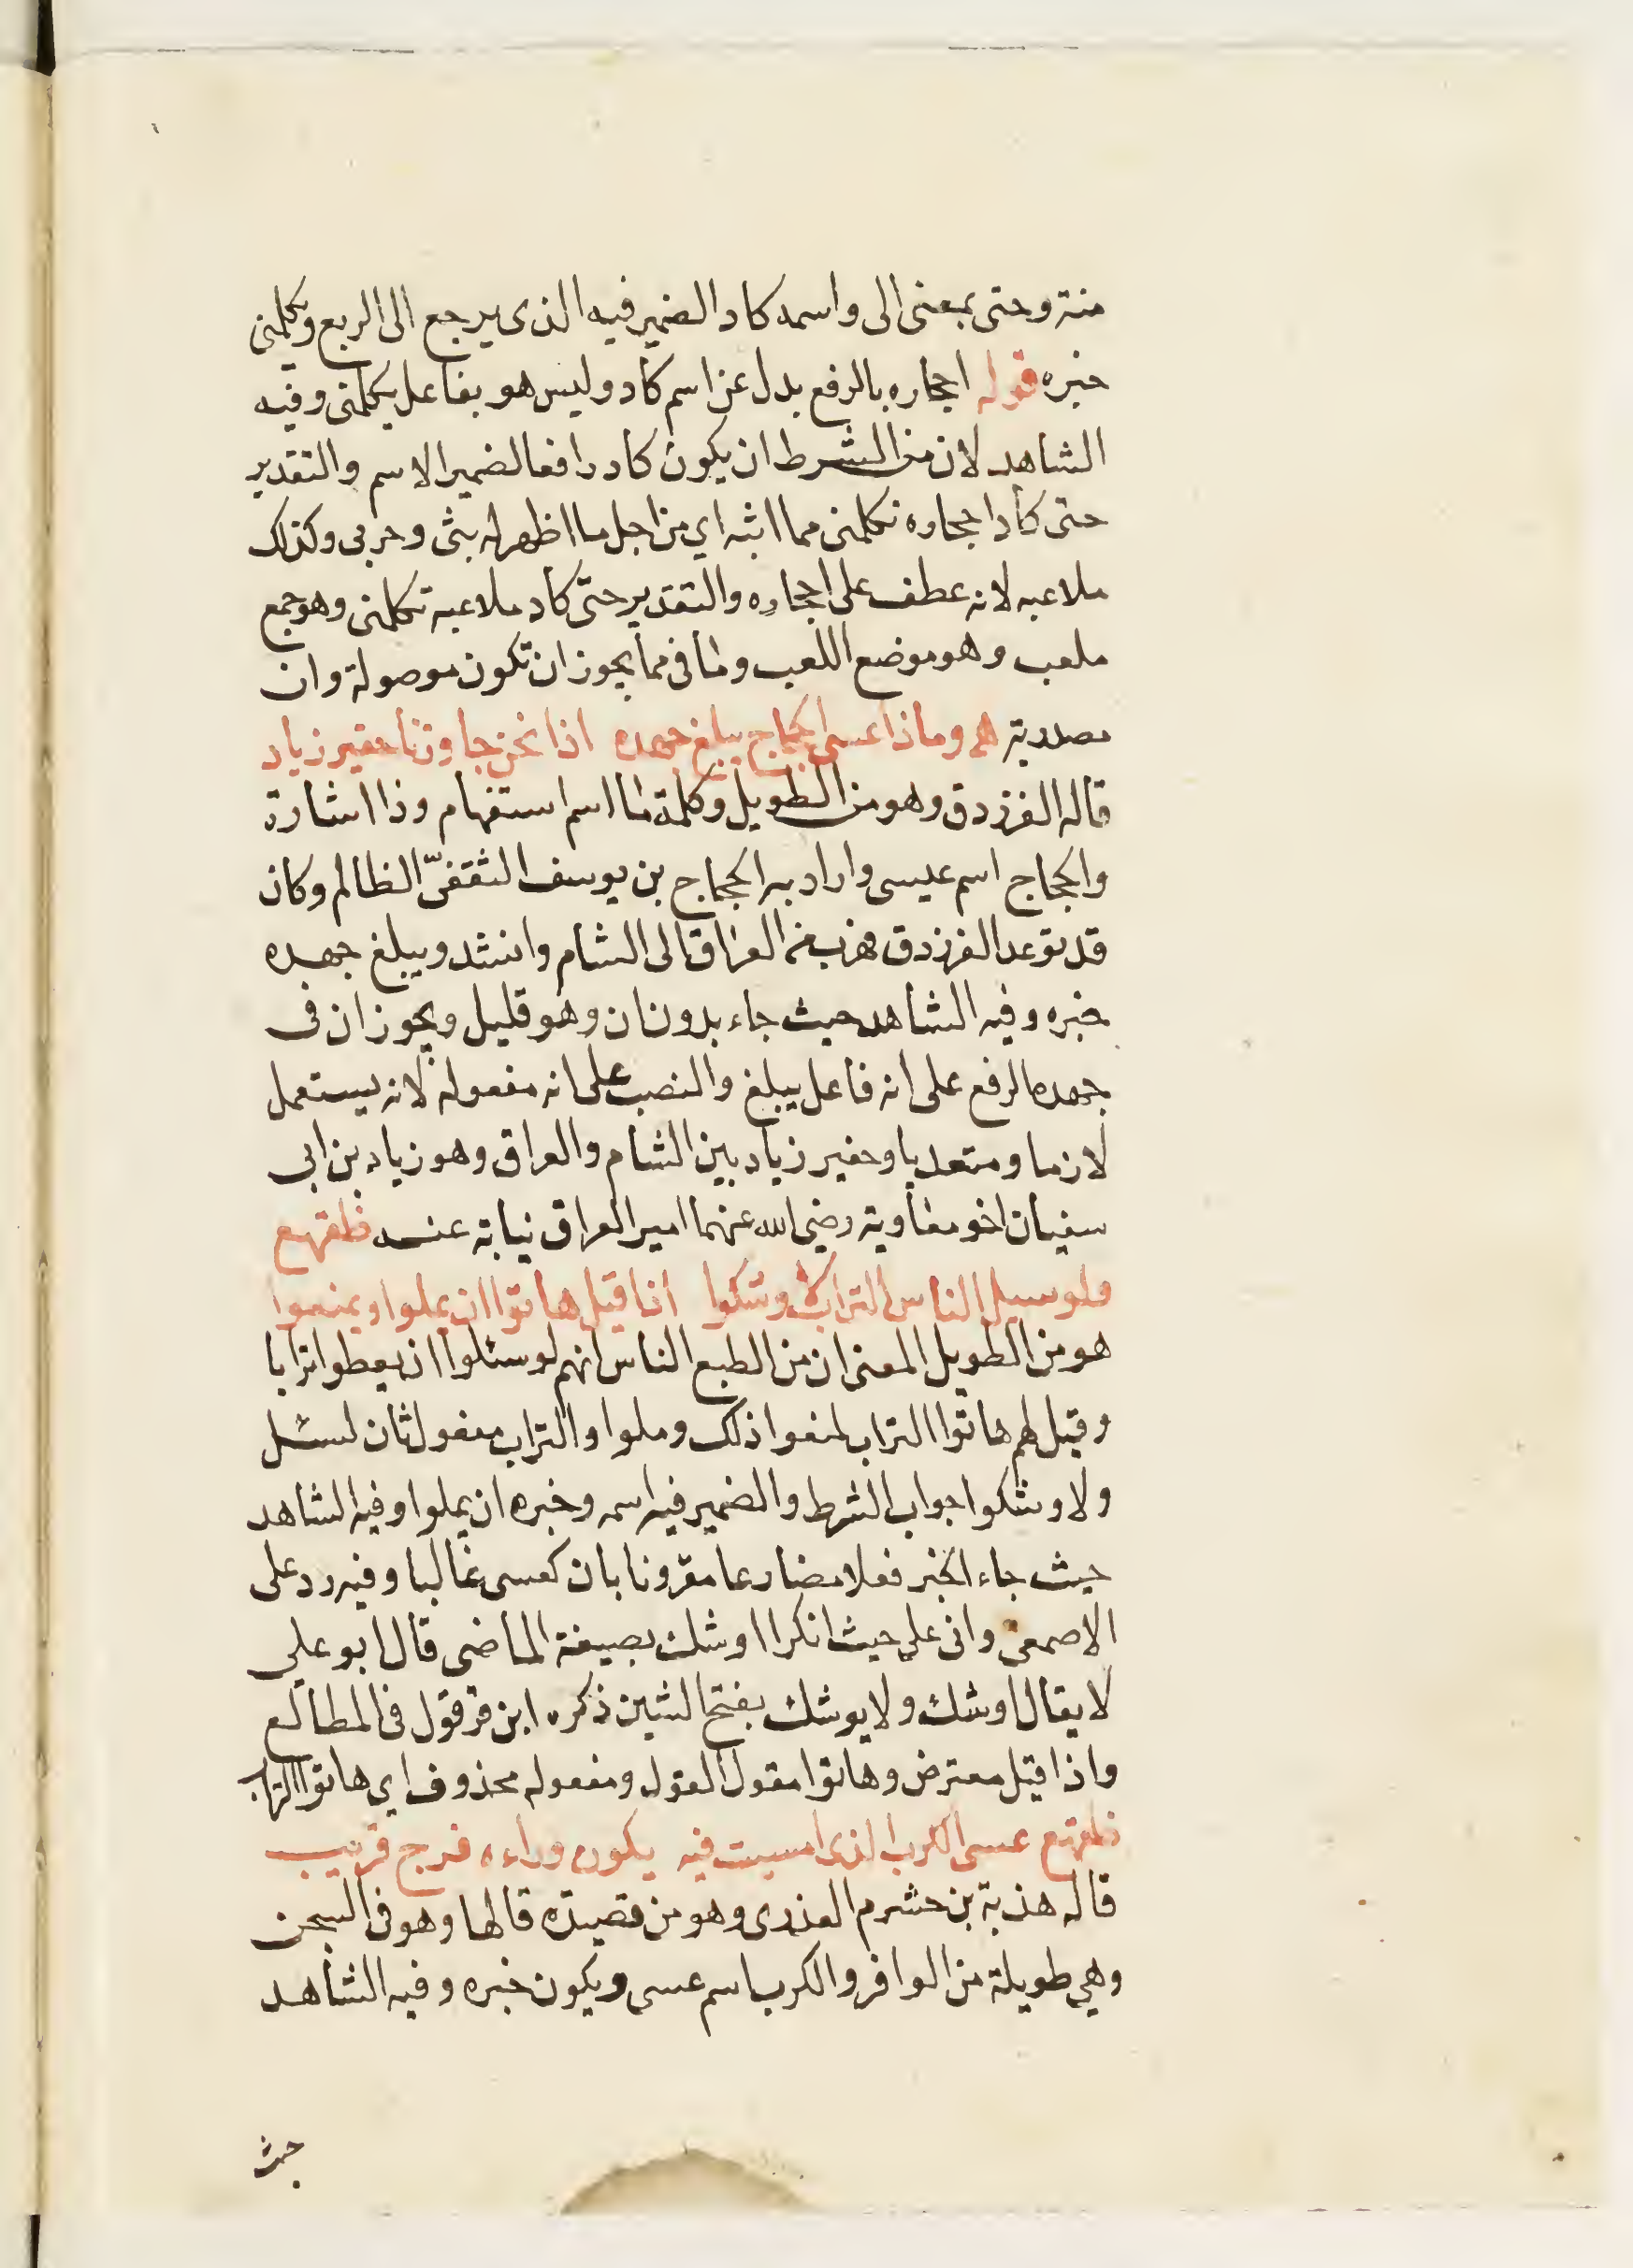 منة وحتى بمعنى الى واسمه كاد الضمير فيه الذى يرجع الى الربع وتكلمنى
خبره قوله احجاره بالرفع بدل عن اسم كاد وليس هو بفاعل يكلمنى وفيه
الشاهد لان من الشرط ان يكون كاد رافعا لضمير الاسم والتقدير
حتى كاد احجاره تكلمنى مما ابثه اي من اجل ما اظهر له بثى وحزنى وكذلك
ملاعبه لانه عطف على احجاره والتقدير حتى كاد ملاعبه تكلمنى وهو جمع
ملعب وهو موضع اللعب وما فى مما يجوز ان تكون موصولة وان
مصدرية وماذا عسى الحجاج يبلغ جهده اذا نحن جاوزنا حفير زياد
قاله الفرزدق وهو من الطويل وكلمة ما اسم استفهام وذا اشارة
والحجاج اسم عيسى واراد به الحجاج بن يوسف الثقفىّ الظالم وكان
قد توعد الفرزدق فهرب من العراق الى الشام وانشد ويبلغ جهده
خبره وفيه الشاهد حيث جاء بدون ان وهو قليل ويجوز ان فى
جهده الرفع على انه فاعل يبلغ والنصب على انه مفعوله لانه يستعمل
لازما ومتعديا وحفير زياد بين الشام والعراق وهو زياد بن ابى
سفيان اخو معاوية رضى الله عنهما امير العراق نيابة عنه ظقهع
ولو سيل الناس التراب لاوشكوا اذا قيل هاتوا ان يملوا ويمنعوا
هو من الطويل المعنى ان من الطبع الناس انهم لو سئلوا ان يعطوا ترابا
وقيل لهم هاتوا التراب لمنعوا ذلك وملوا والتراب مفعول ثان لسئل
ولاوشكوا جواب الشرط والضمير فيه اسمه وخبره ان يملوا وفيه الشاهد
حيث جاء الخبر فعلا مضارعا مقرونا بان كعسى غالبا وفيه رد على
الاصمعى وانى على حيث انكرا اوشك بصيغة الماضى قال ابو على
لا يقال اوشك ولا يوشك بفتح الشين ذكره ابن قرقول فى المطالع
واذا قيل معترض وهاتوا مقول القول ومفعوله محذوف اي هاتوا التراب
ظقهع عسى الكرب الذى امسيت فيه يكون وراءه فرج قريب
قاله هذبة بن خشرم العذرى وهو من قصيدة قالها وهو فى السجن
وهي طويلة من الوافر والكرب اسم عسى ويكون خبره وفيه الشاهد
حيث